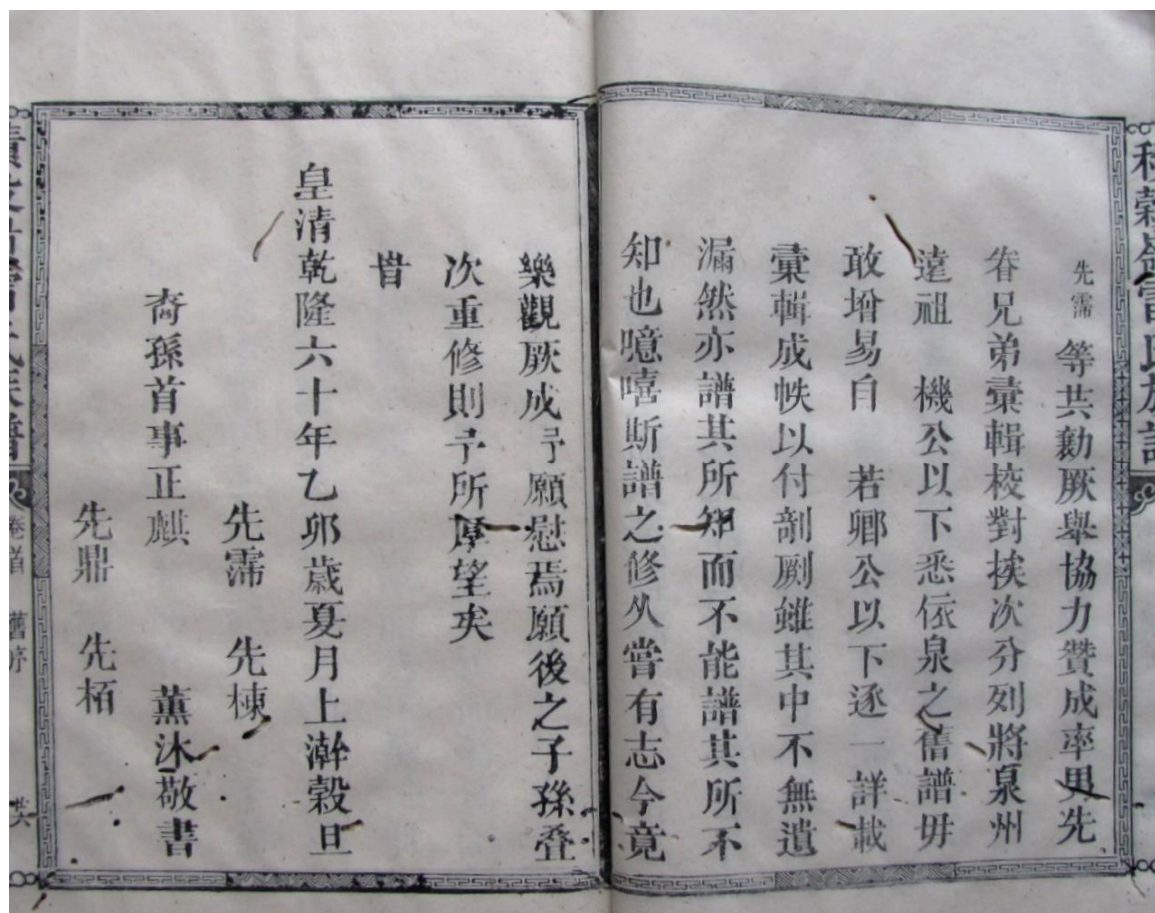 先霈等共勷厥舉協力贊成率男先
眷兄弟彚輯校對挨次分列將泉州
遠祖　機公以下悉依泉之舊譜毋
敢增易自　若卿公以下逐一詳載
彚輯成帙以付剞劂雖其中不無遺
漏然亦譜其所知而不能譜其所不
知也噫嘻斯譜之修久嘗有志今竟
樂觀厥成予願慰焉願後之子孫叠
次重修則予所厚望矣
旹
皇清乾隆六十年乙卯歲夏月上澣穀旦
先霈　先棟
裔孫首事正麒　薰沐敬書
先鼎　先栢
卷首　舊序　廿六